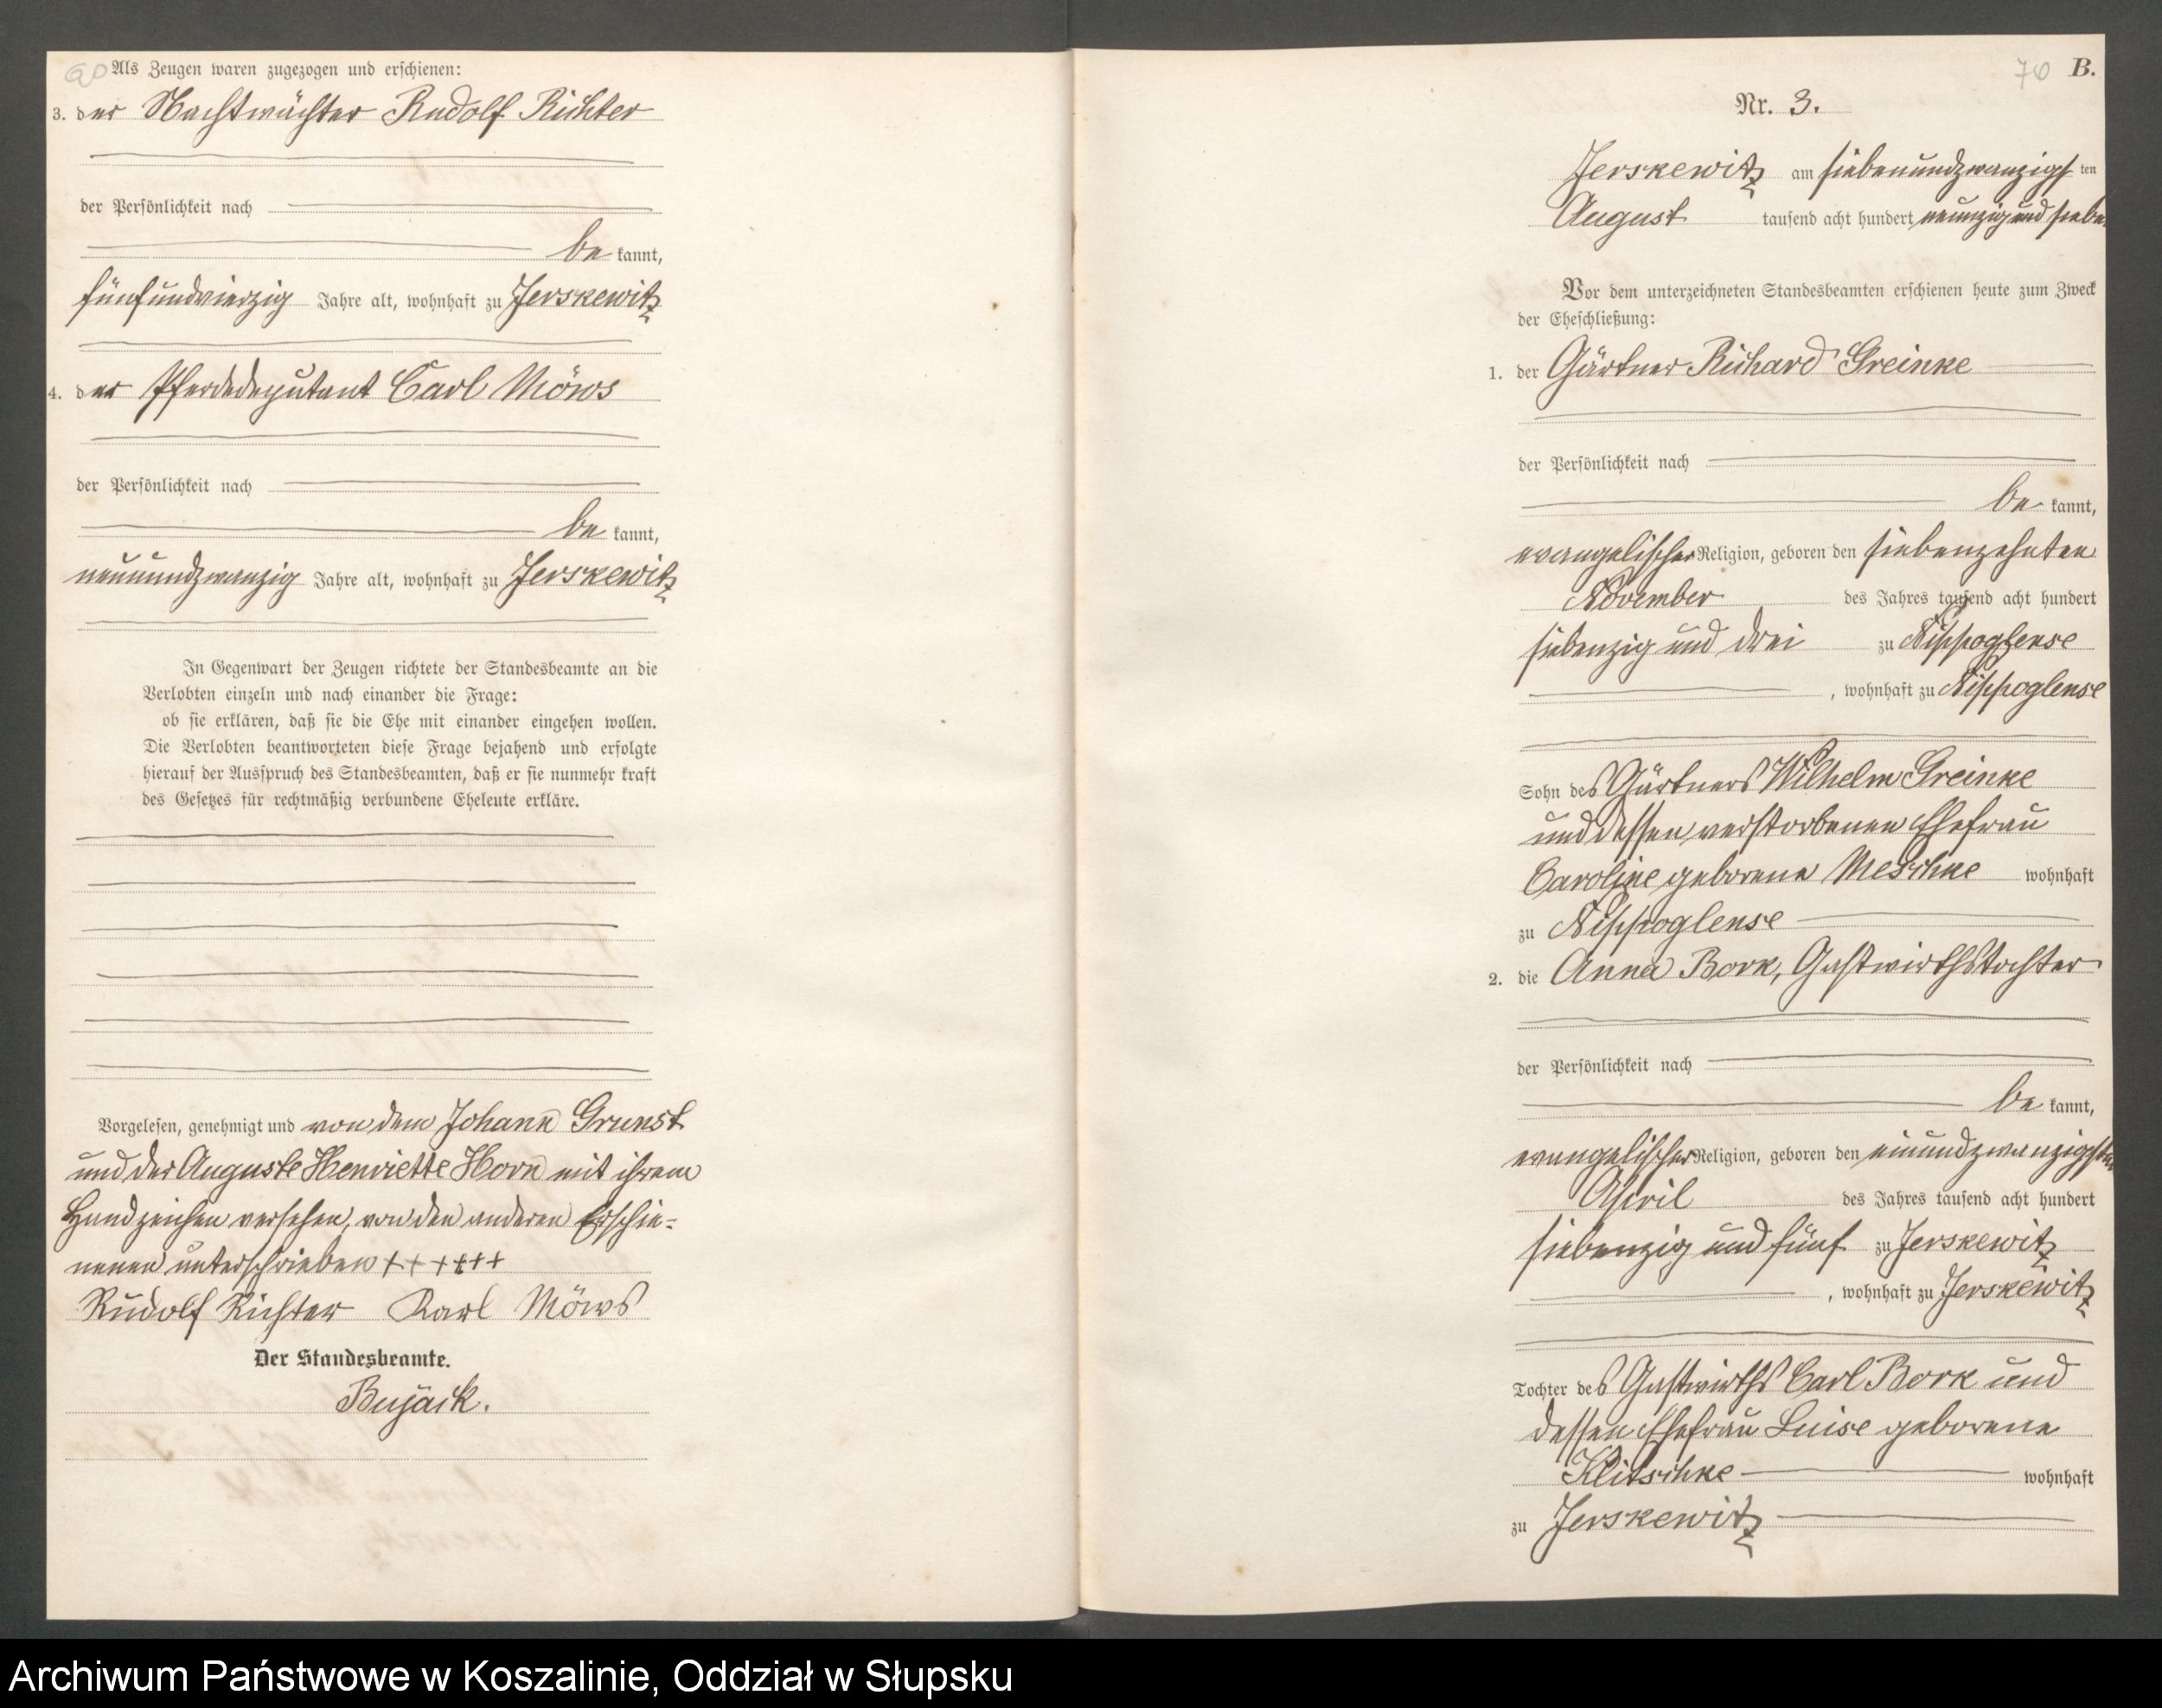 60 Als Zeugen waren zugezogen und erschienen:
3. der Nachtwächter Rudolf Richter
der Persönlichkeit nach
be kannt,
fünfundvierzig Jahre alt, wohnhaft zu Jerskewitz
4. der Pferdedeputant Carl Möws
der Persönlichkeit nach
be kannt,
neunundzwanzig Jahre alt, wohnhaft zu Jerskewitz
In Gegenwart der Zeugen richtete der Standesbeamte an die
Verlobten einzeln und nach einander die Frage:
ob sie erklären, daß sie die Ehe mit einander eingehen wollen.
Die Verlobten beantworteten diese Frage bejahend und erfolgte
hierauf der Ausspruch des Standesbeamten, daß er sie nunmehr kraft
des Gesetzes für rechtmäßig verbundene Eheleute erkläre.
Vorgelesen, genehmigt und von dem Johann Grunst
und der Auguste Henriette Horn mit ihrem
Handzeichen versehen, von den anderen Erschie-
nenen unterschrieben + + + + + +
Rudolf Richter Karl Möws
Der Standesbeamte.
Bujack.
70 B.
Nr. 3.
Jerskewitz am siebenundzwanzigs ten
August tausend acht hundert neunzig und siebe
Vor dem unterzeichneten Standesbeamten erschienen heute zum Zweck
der Eheschließung:
1. der Gärtner Richard Greinke
der Persönlichkeit nach
be kannt,
evangelischer Religion, geboren den siebenzehnten
November des Jahres tausend acht hundert
siebenzig und drei zu Nippoglense
, wohnhaft zu Nippoglense
Sohn des Gärtners Wilhelm Greinke
und dessen verstorbenen Ehefrau
Caroline geborene Meschke wohnhaft
zu Nippoglense
2. die Anna Bork, Gastwirthstochter
der Persönlichkeit nach
be kannt,
evangelischer Religion, geboren den einundzwanzigsten
April des Jahres tausend acht hundert
siebenzig und fünf zu Jerskewitz
, wohnhaft zu Jerskewitz
Tochter des Gastwirths Carl Bork und
dessen Ehefrau Luise geborene
Klitschke wohnhaft
zu Jerskewitz
Archiwum Państwowe w Koszalinie, Oddział w Słupsku